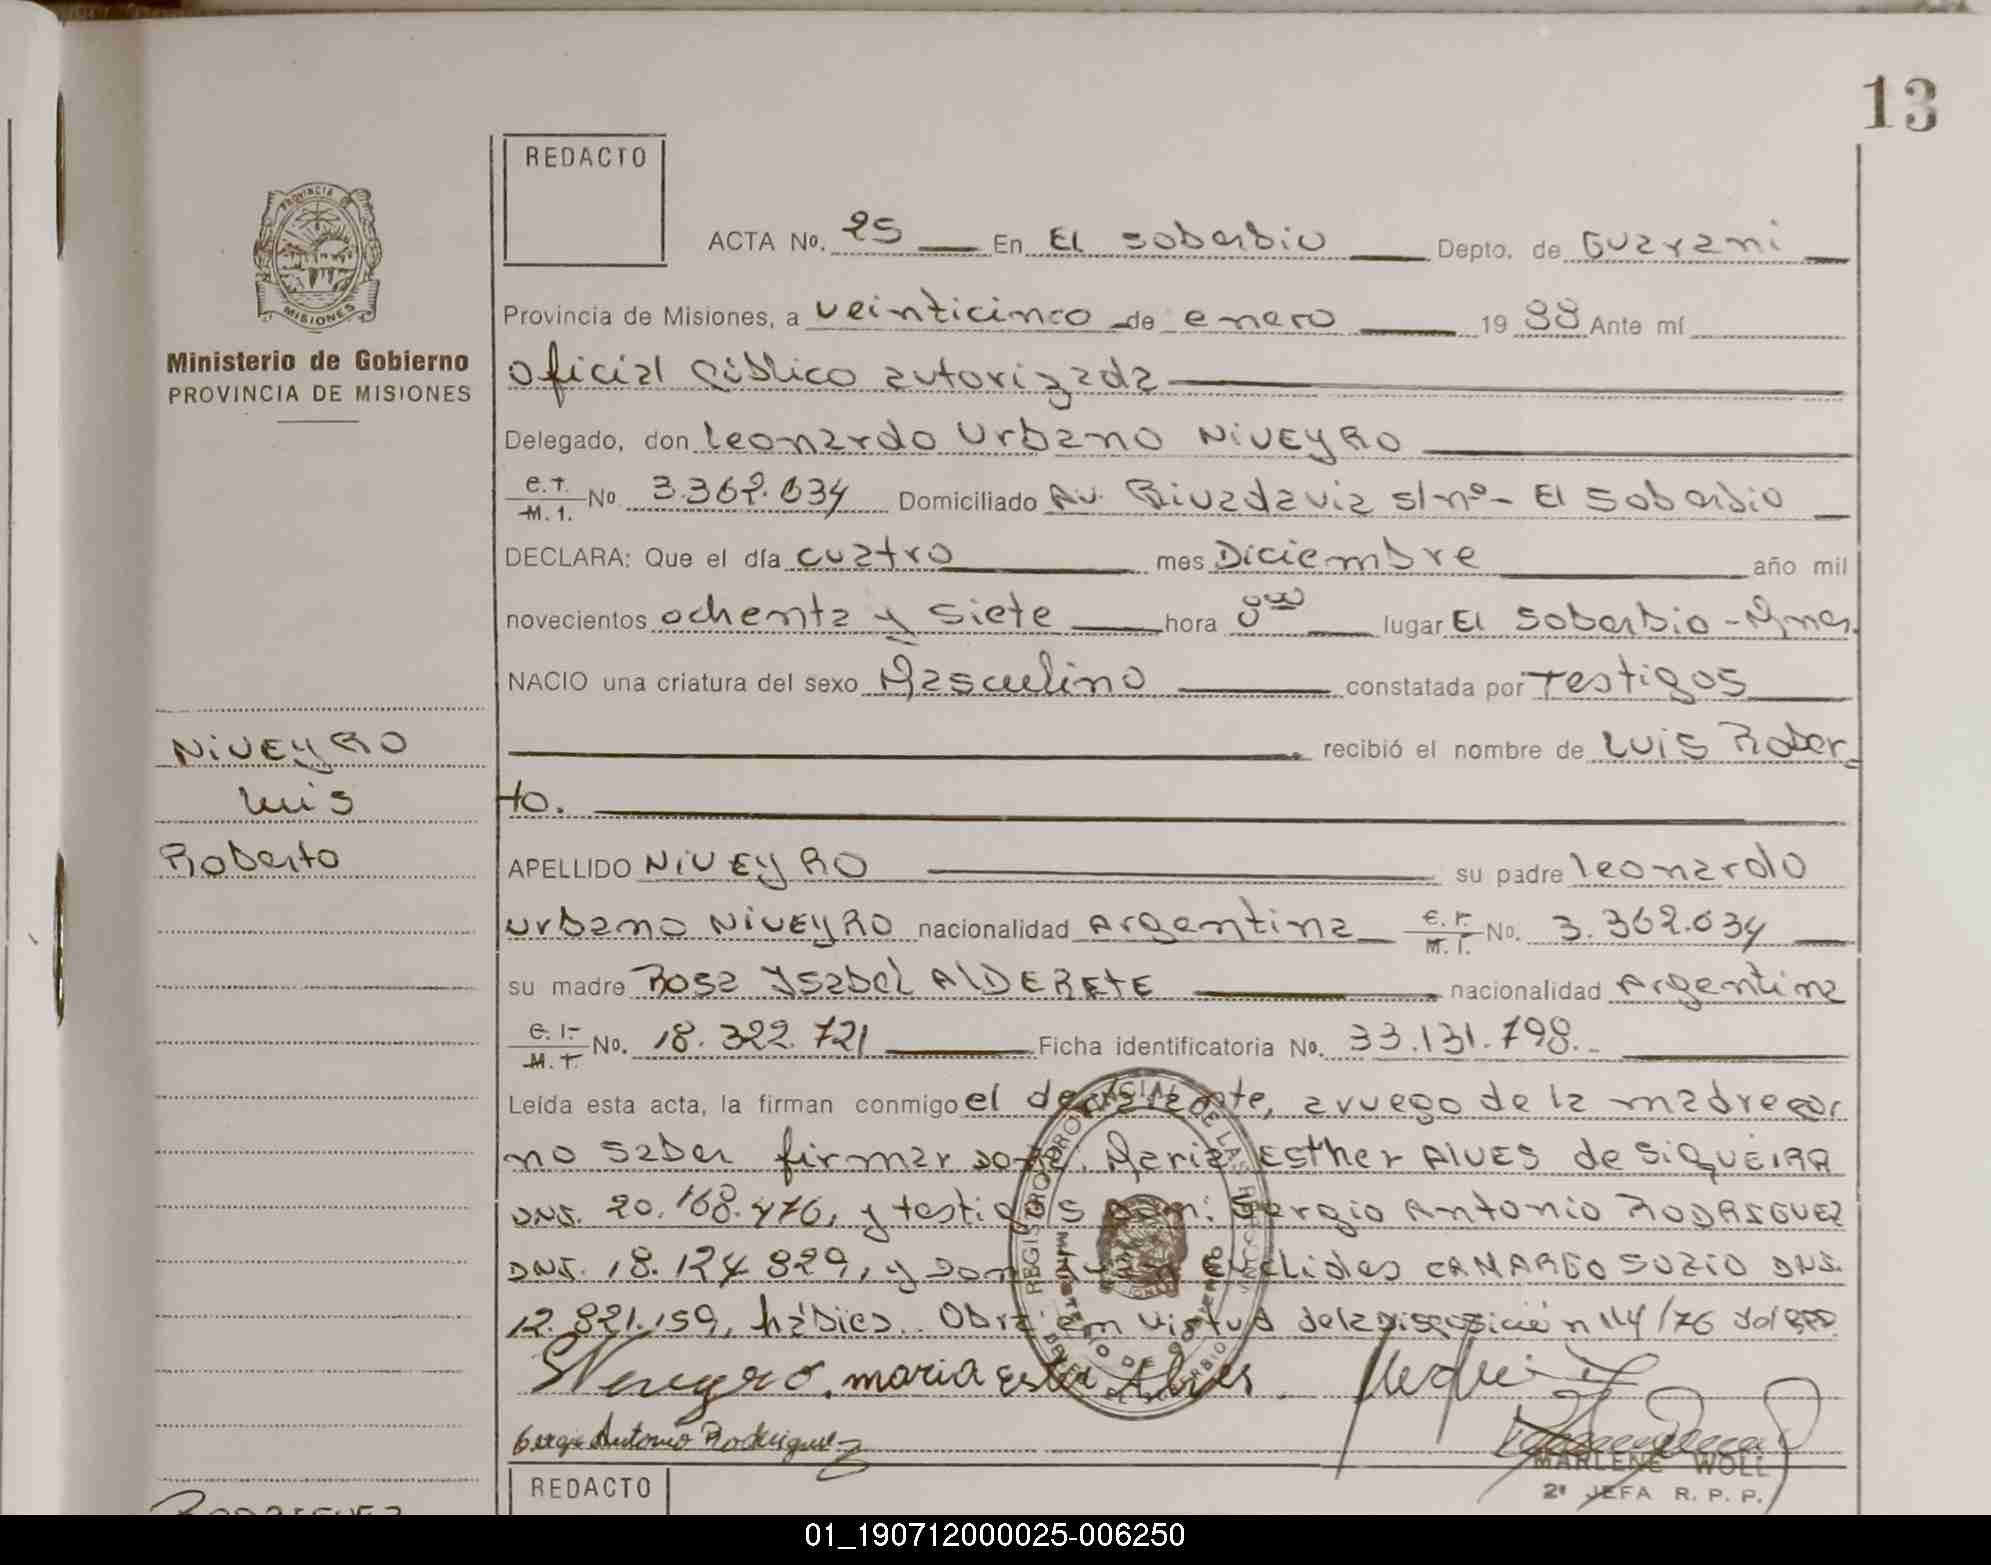 13
REDACTO
ACTA No. 25 En El Soberbio Depto. de Guarani
Provincia de Misiones, a veinticinco de enero 1988 Ante mí
oficial público autorizada
PROVINCIA DE
MISIONES
Ministerio de Gobierno
PROVINCIA DE MISIONES
Delegado, don Leonardo Urbano NIVEYRO
C.I. M.I. No 3.362.634 Domiciliado Av. Rivadavia s/nº - El Soberbio
DECLARA: Que el día cuatro mes Diciembre año mil
novecientos ochenta y siete hora lugar El Soberbio - Mnes.
NACIO una criatura del sexo Masculino constatada por Testigos
recibió el nombre de Luis Rober
to.
NIVEYRO
Luis
Roberto
APELLIDO NIVEYRO su padre Leonardo
Urbano NIVEYRO nacionalidad Argentina C.I. M.I. No. 3.362.634
su madre Rosa Ysabel ALDERETE nacionalidad Argentina
C.I. M.I. No. 18.322.721 Ficha identificatoria No. 33.131.798.-
Leída esta acta, la firman conmigo el declarante, a ruego de la madre por
no saber firmar doña. Maria Esther ALVES de SIQUEIRA
DNI. 20.168.476, y testigos don: Sergio Antonio RODRIGUEZ
DNI. 18.124.829, y don Euclides CAMARGO SUZIO DNI.
12.821.159, hábiles. Obra en virtud de la Disposición n 114/76 del RPP.
Niveyro. maria Ester Alves
Sergio Antonio Rodriguez
MARLENE WOLL
2ª JEFA R. P. P.
REGISTRO PROVINCIAL DE LAS PERSONAS
MINISTERIO DE GOBIERNO
REDACTO
RODRIGUEZ
01_190712000025-006250